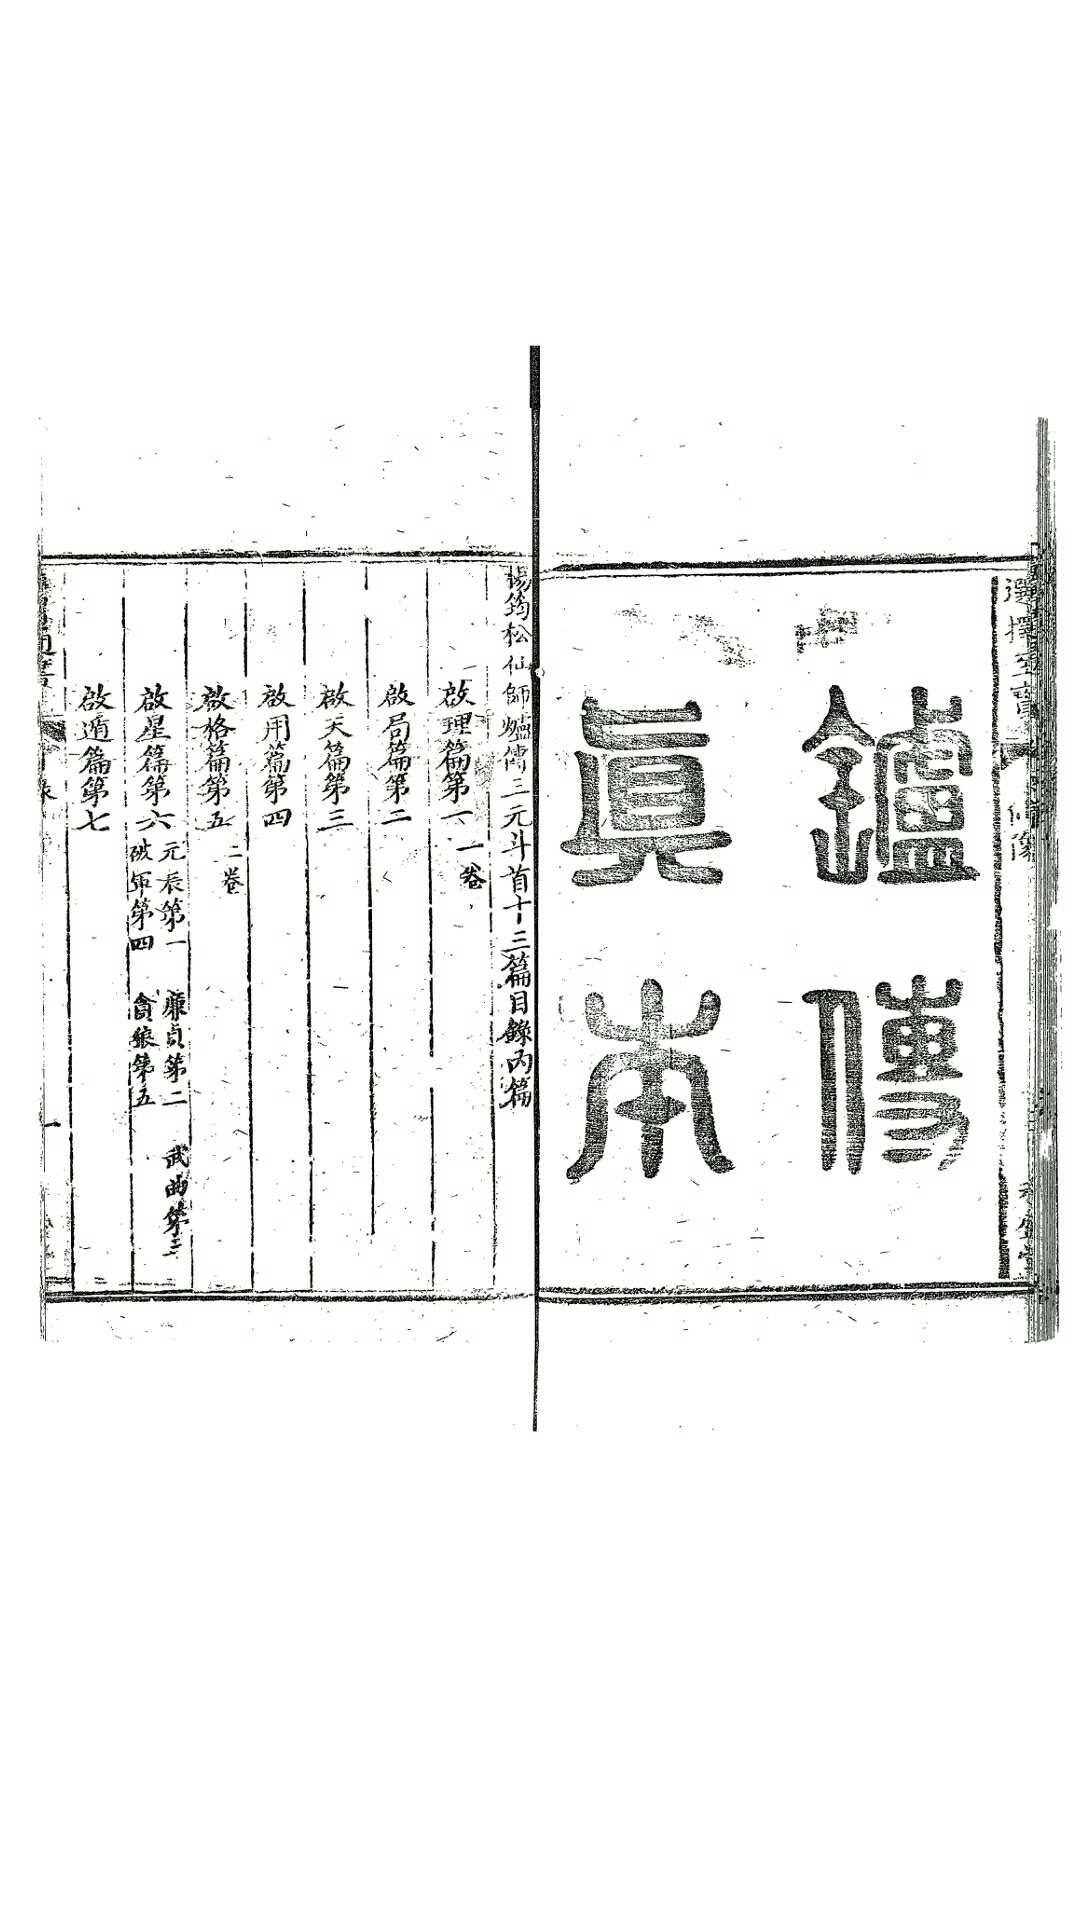 鑪傳
眞本
楊筠松仙師爐傳三元斗首十三篇目錄內篇
啟理篇第一 一卷
啟局篇第二
啟天篇第三
啟用篇第四
啟格篇第五 二卷
啟星篇第六 元辰第一 廉貞第二 武曲第三
破軍第四 貪狼第五
啟遁篇第七